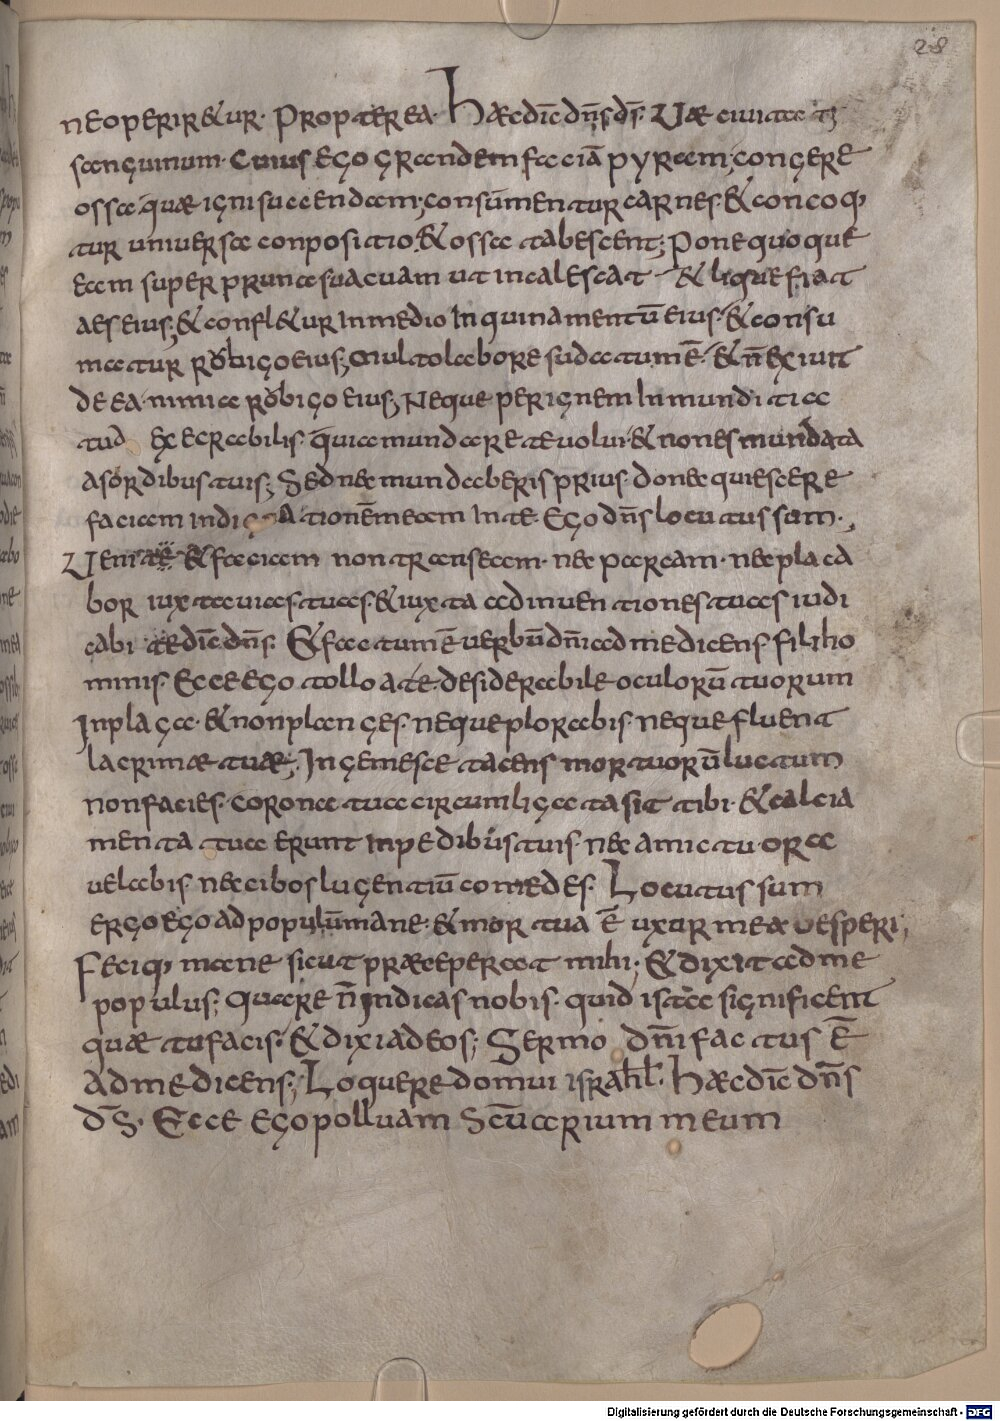 28
neoperiretur. Propterea. Haec dic̄ dn̄s ds̄. Vae ciuitati
sanguinum. Cuius ego grandem faciā pyram; congere
ossa quae igni succendam; consūmentur carnes. & concoq
tur uniuersa conpositio. & ossa tabescent; Pone quoque
eam super prunas uacuam ut incalescat & liquefiat
aes eius; & confl&ur In medio Inquinamentū eius. & consu
matur robigo eius; Multo labore sudatum ē. & n̄ exiuit
de ea nimia robigo eius; Neque per ignem Inmunditia
tua execrabilis. quia mundare te uolui & non es mundata
a sordibus tuis; Sed nec mundaberis prius. donec quiescere
faciam indignationēm meam In te. Ego dn̄s locutus sum.,
Veni& & faciam non transeam. nec parcam. nec placa
bor iuxta uias tuas. & iuxta adinuentiones tuas iudi
cabi te dic̄ dn̄s. & factum ē uerbū dn̄i ad me dicens. fili ho
minis. Ecce ego tollo a te. desiderabile oculorū tuorum
In plaga. & non planges. neque plorabis. neque fluent
lacrimae tuae; Ingemesce tacens mortuorū luctum
non facies. corona tua circumligata sit tibi. & calcia
menta tua erunt In pedibus tuis. nec amictu. ora
uelabis. nec cibos lugentiū comedes. Locutus sum
ergo ego ad populūm mane. & mortua ē uxur mea uesperi;
Feciq mane sicut praeceperat mihi; & dixit ad me
populus; quare n̄ Indicas nobis. quid ista significent
quae tu facis. & dixi ad eos; Sermo dn̄i factus ē
ad me dicens; Loquere domui israhl̄. Haec dic̄ dn̄s
ds̄. Ecce ego polluam Scūarium meum
Digitalisierung gefördert durch die Deutsche Forschungsgemeinschaft - DFG